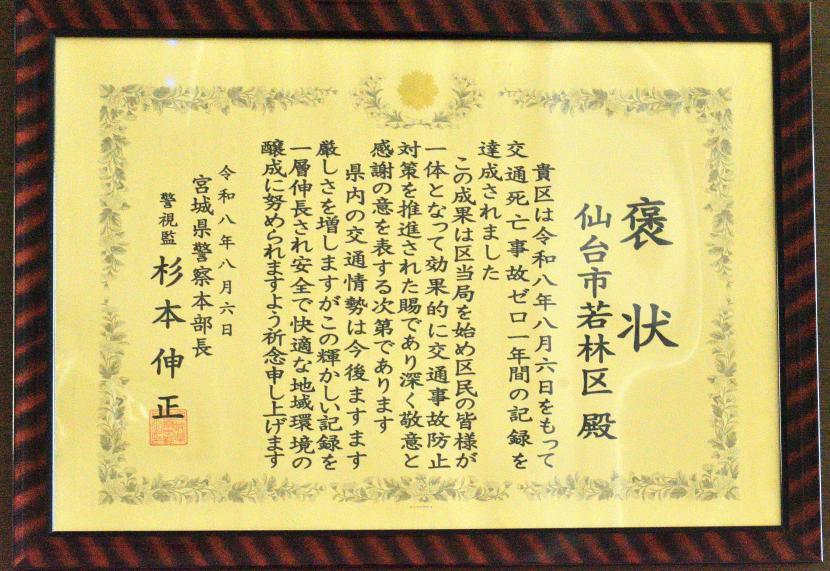 褒状
仙台市若林区 殿
貴区は令和八年八月六日をもって
交通死亡事故ゼロ一年間の記録を
達成されました
この成果は区当局を始め区民の皆様が
一体となって効果的に交通事故防止
対策を推進された賜であり深く敬意と
感謝の意を表する次第であります
県内の交通情勢は今後ますます
厳しさを増しますがこの輝かしい記録を
一層伸長され安全で快適な地域環境の
醸成に努められますよう祈念申し上げます
令和八年八月六日
宮城県警察本部長
警視監 杉本伸正